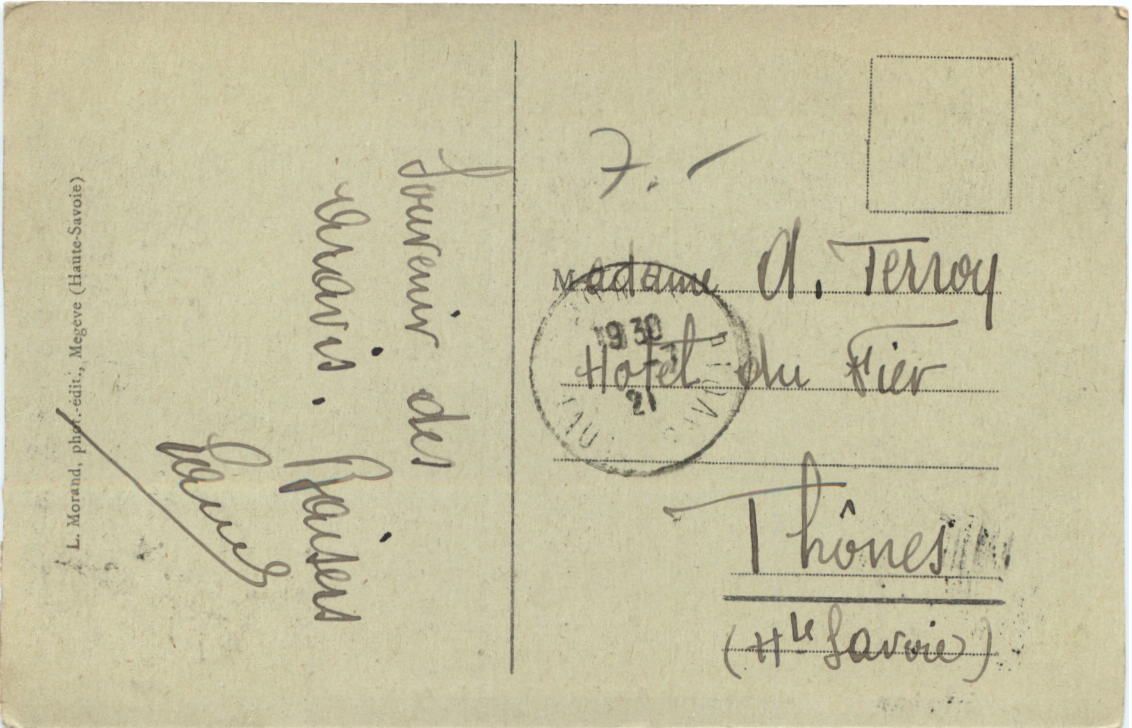 L. Morand, phot.-édit., Megève (Haute-Savoie)
Souvenir des
Aravis. Baisers
7. -
Madame A. Terroy
Hotel du Fier
Thônes
(Hte Savoie)
19 30
21